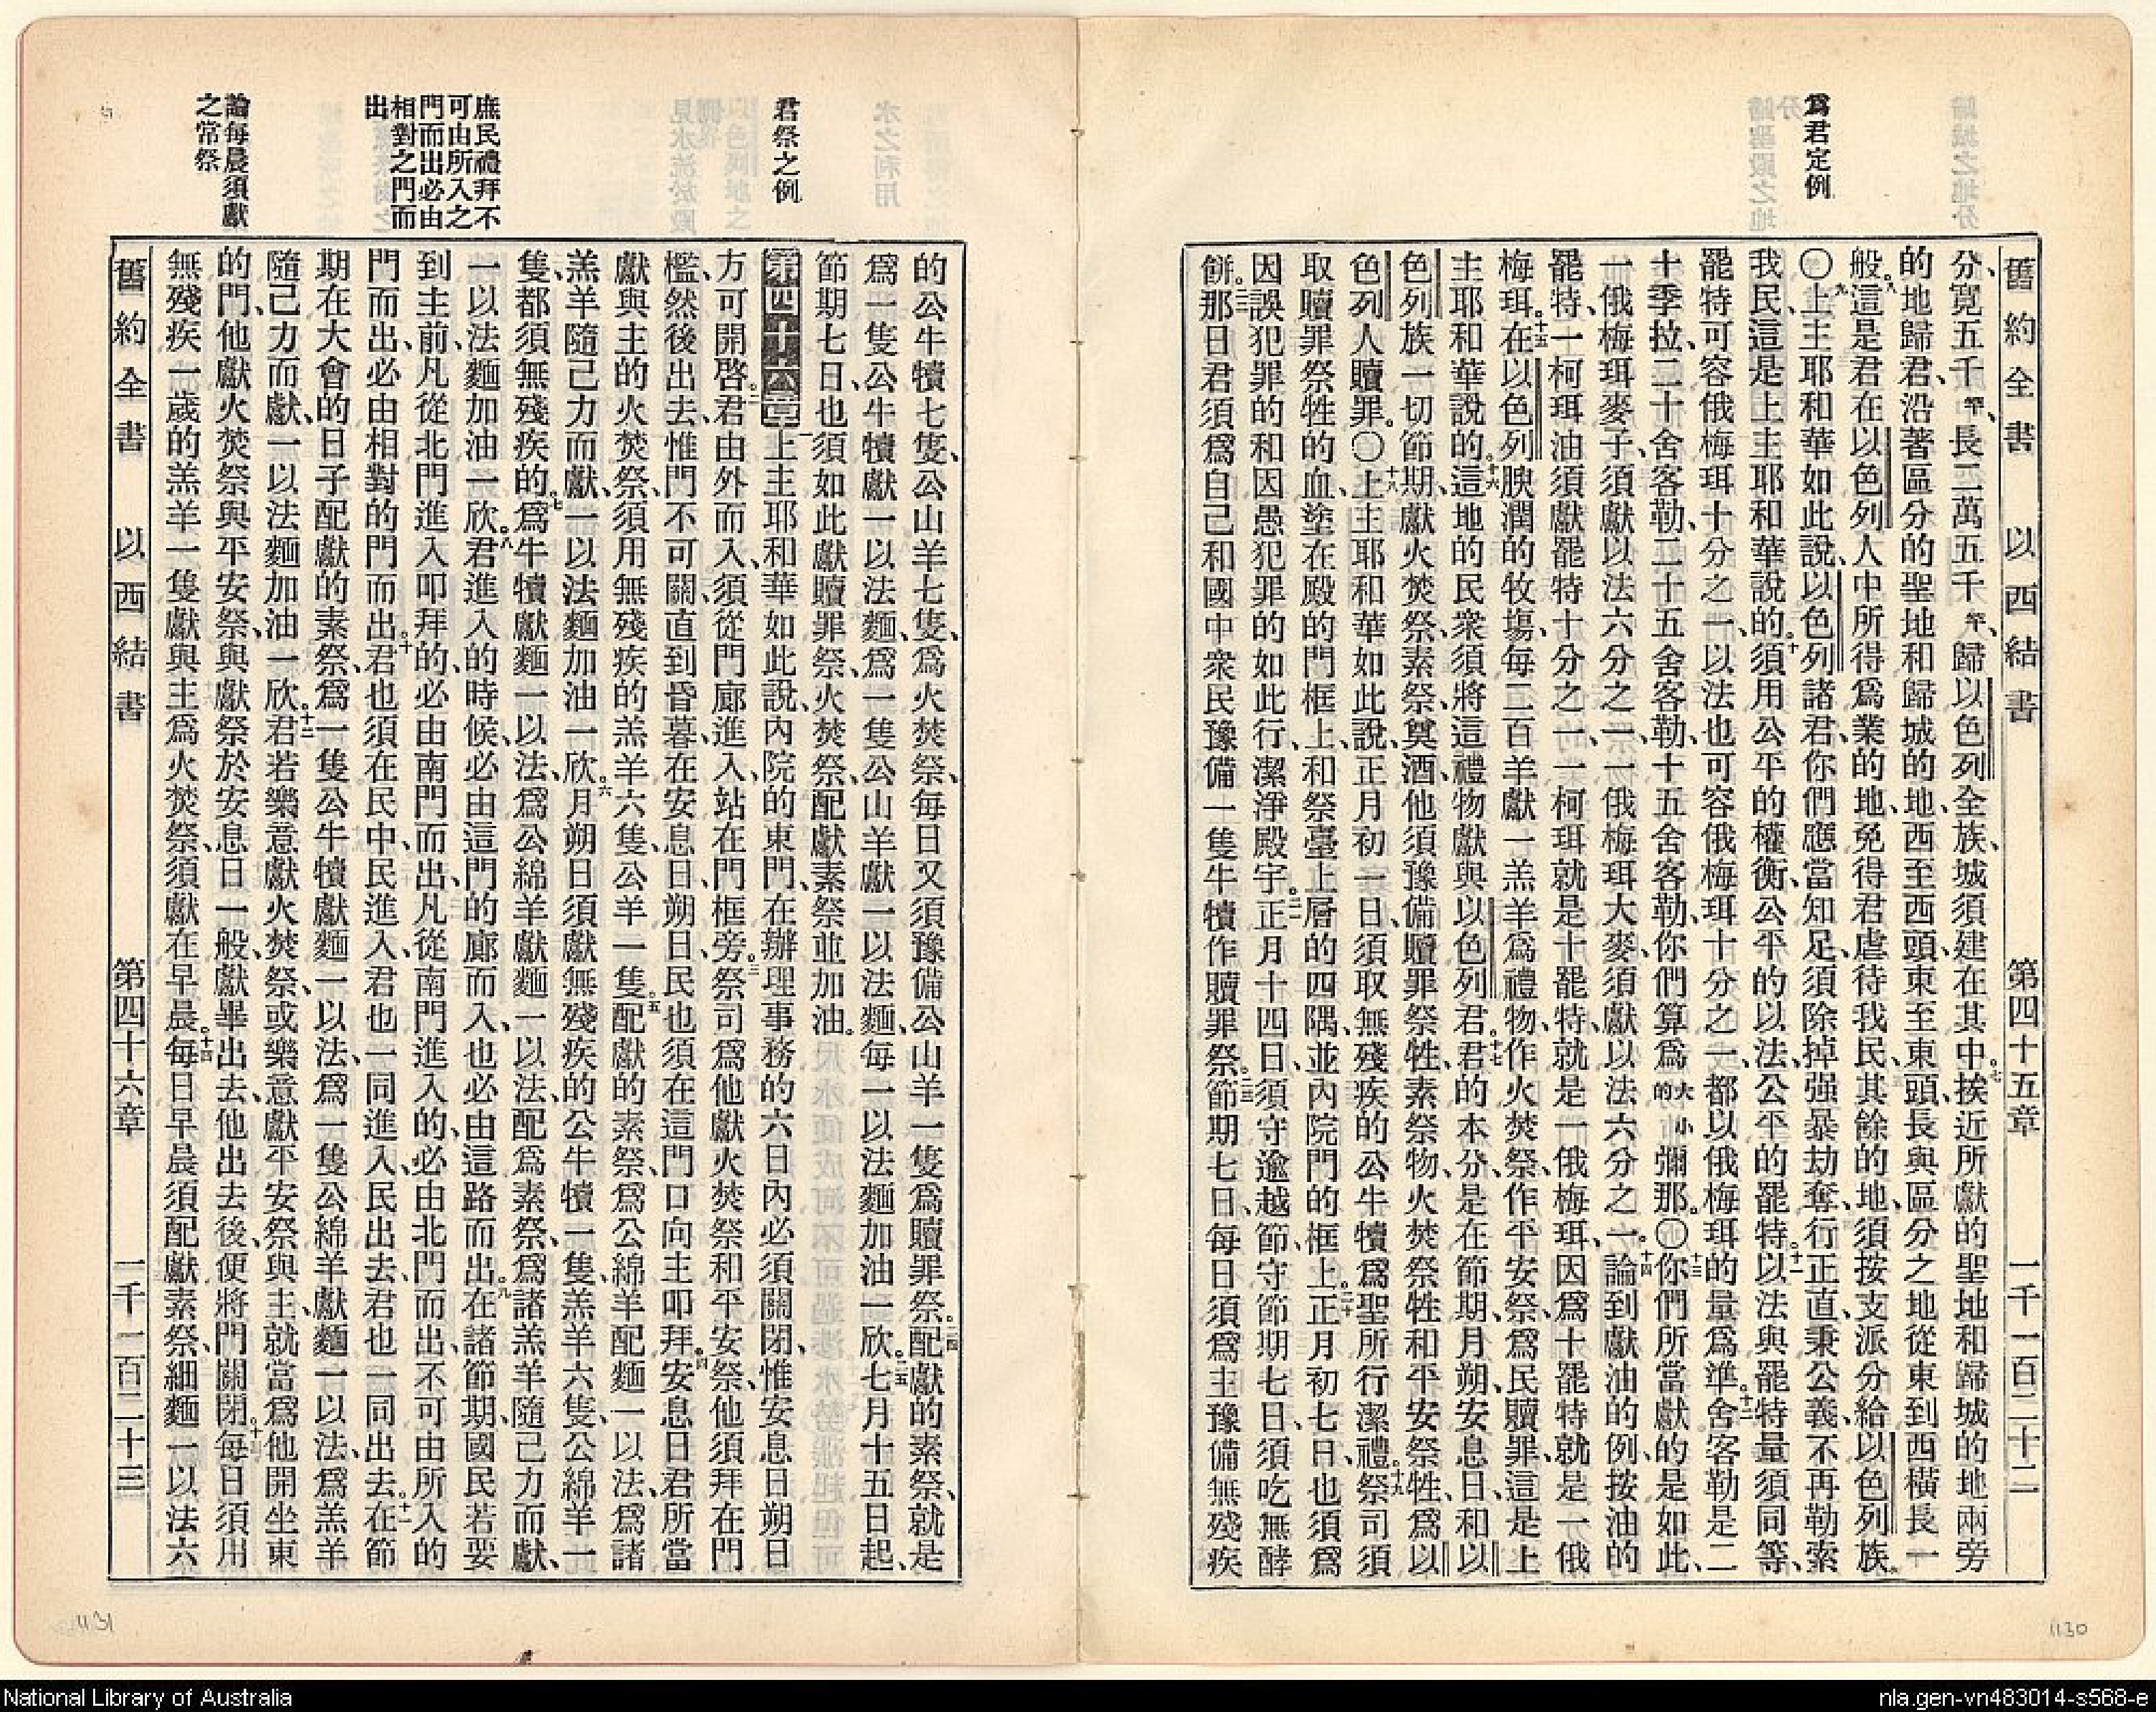 爲君定例
舊約全書 以西結書 第四十五章 一千一百二十二
分、寬五千竿、長二萬五千竿、歸以色列全族、城須建在其中。七挨近所獻的聖地和歸城的地兩旁
的地歸君、沿著區分的聖地和歸城的地、西至西頭、東至東頭、長與區分之地從東到西橫長一
般。八這是君在以色列人中所得爲業的地、免得君虐待我民、其餘的地、須按支派分給以色列族。
〇九上主耶和華如此說、以色列諸君、你們應當知足、須除掉强暴劫奪、行正直、秉公義、不再勒索
我民、這是上主耶和華說的。十須用公平的權衡、公平的以法、公平的罷特。十一以法與罷特量須同等、
罷特可容俄梅珥十分之一、以法也可容俄梅珥十分之一、都以俄梅珥的量爲準。十二舍客勒是二
十季拉、二十舍客勒、二十五舍客勒、十五舍客勒、你們算爲大的小彌那。〇十三你們所當獻的是如此、
一俄梅珥麥子、須獻以法六分之一、一俄梅珥大麥、須獻以法六分之一。十四論到獻油的例、按油的
罷特、一柯珥油須獻罷特十分之一、一柯珥就是十罷特、就是一俄梅珥、因爲十罷特就是一俄
梅珥。十五在以色列腴潤的牧塲、每二百羊獻一羔羊爲禮物、作火焚祭、作平安祭、爲民贖罪、這是上
主耶和華說的。十六這地的民衆須將這禮物獻與以色列君。十七君的本分是在節期、月朔、安息日、和以
色列族一切節期、獻火焚祭、素祭、奠酒、他須豫備贖罪祭牲、素祭物、火焚祭牲和平安祭牲、爲以
色列人贖罪。〇十八上主耶和華如此說、正月初一日、須取無殘疾的公牛犢爲聖所行潔禮。十九祭司須
取贖罪祭牲的血、塗在殿的門框上、和祭臺上層的四隅、並內院門的框上。二十正月初七日也須爲
因誤犯罪的和因愚犯罪的如此行、潔淨殿宇。二一正月十四日、須守逾越節、守節期七日、須吃無酵
餅。二二那日君須爲自己和國中衆民豫備一隻牛犢作贖罪祭。二三節期七日、每日須爲主豫備無殘疾
君祭之例
庶民禮拜不
可由所入之
門而出必由
相對之門而
出
論每晨須獻
之常祭
的公牛犢七隻、公山羊七隻、爲火焚祭、每日又須豫備公山羊一隻爲贖罪祭。二四配獻的素祭、就是
爲一隻公牛犢獻一以法麵、爲一隻公山羊獻一以法麵、每一以法麵加油一欣。二五七月十五日起、
節期七日、也須如此獻贖罪祭、火焚祭、配獻素祭並加油。
第四十六章 一上主耶和華如此說、內院的東門、在辦理事務的六日內必須關閉、惟安息日朔日
方可開啓。二君由外而入、須從門廊進入、站在門框旁。三祭司爲他獻火焚祭和平安祭、他須拜在門
檻、然後出去、惟門不可關、直到昏暮、在安息日、朔日、民也須在這門口向主叩拜。四安息日君所當
獻與主的火焚祭、須用無殘疾的羔羊六隻、公羊一隻。五配獻的素祭、爲公綿羊配麵一以法、爲諸
羔羊隨己力而獻、一以法麵加油一欣。六月朔日須獻無殘疾的公牛犢一隻、羔羊六隻、公綿羊一
隻、都須無殘疾的。七爲牛犢獻麵一以法、爲公綿羊獻麵一以法、配爲素祭、爲諸羔羊隨己力而獻、
一以法麵加油一欣。八君進入的時候、必由這門的廊而入、也必由這路而出。九在諸節期、國民若要
到主前、凡從北門進入叩拜的、必由南門而出、凡從南門進入的、必由北門而出、不可由所入的
門而出、必由相對的門而出。十君也須在民中、民進入、君也一同進入、民出去、君也一同出去。十一在節
期在大會的日子、配獻的素祭、爲一隻公牛犢獻麵一以法、爲一隻公綿羊獻麵一以法、爲羔羊
隨己力而獻、一以法麵加油一欣。十二君若樂意獻火焚祭、或樂意獻平安祭與主、就當爲他開坐東
的門、他獻火焚祭與平安祭、與獻祭於安息日一般、獻畢出去、他出去後、便將門關閉。十三每日須用
無殘疾一歲的羔羊一隻獻與主爲火焚祭、須獻在早晨。十四每日早晨須配獻素祭、細麵一以法六
舊約全書 以西結書 第四十六章 一千一百二十三
1131
1130
National Library of Australia
nla.gen-vn483014-s568-e